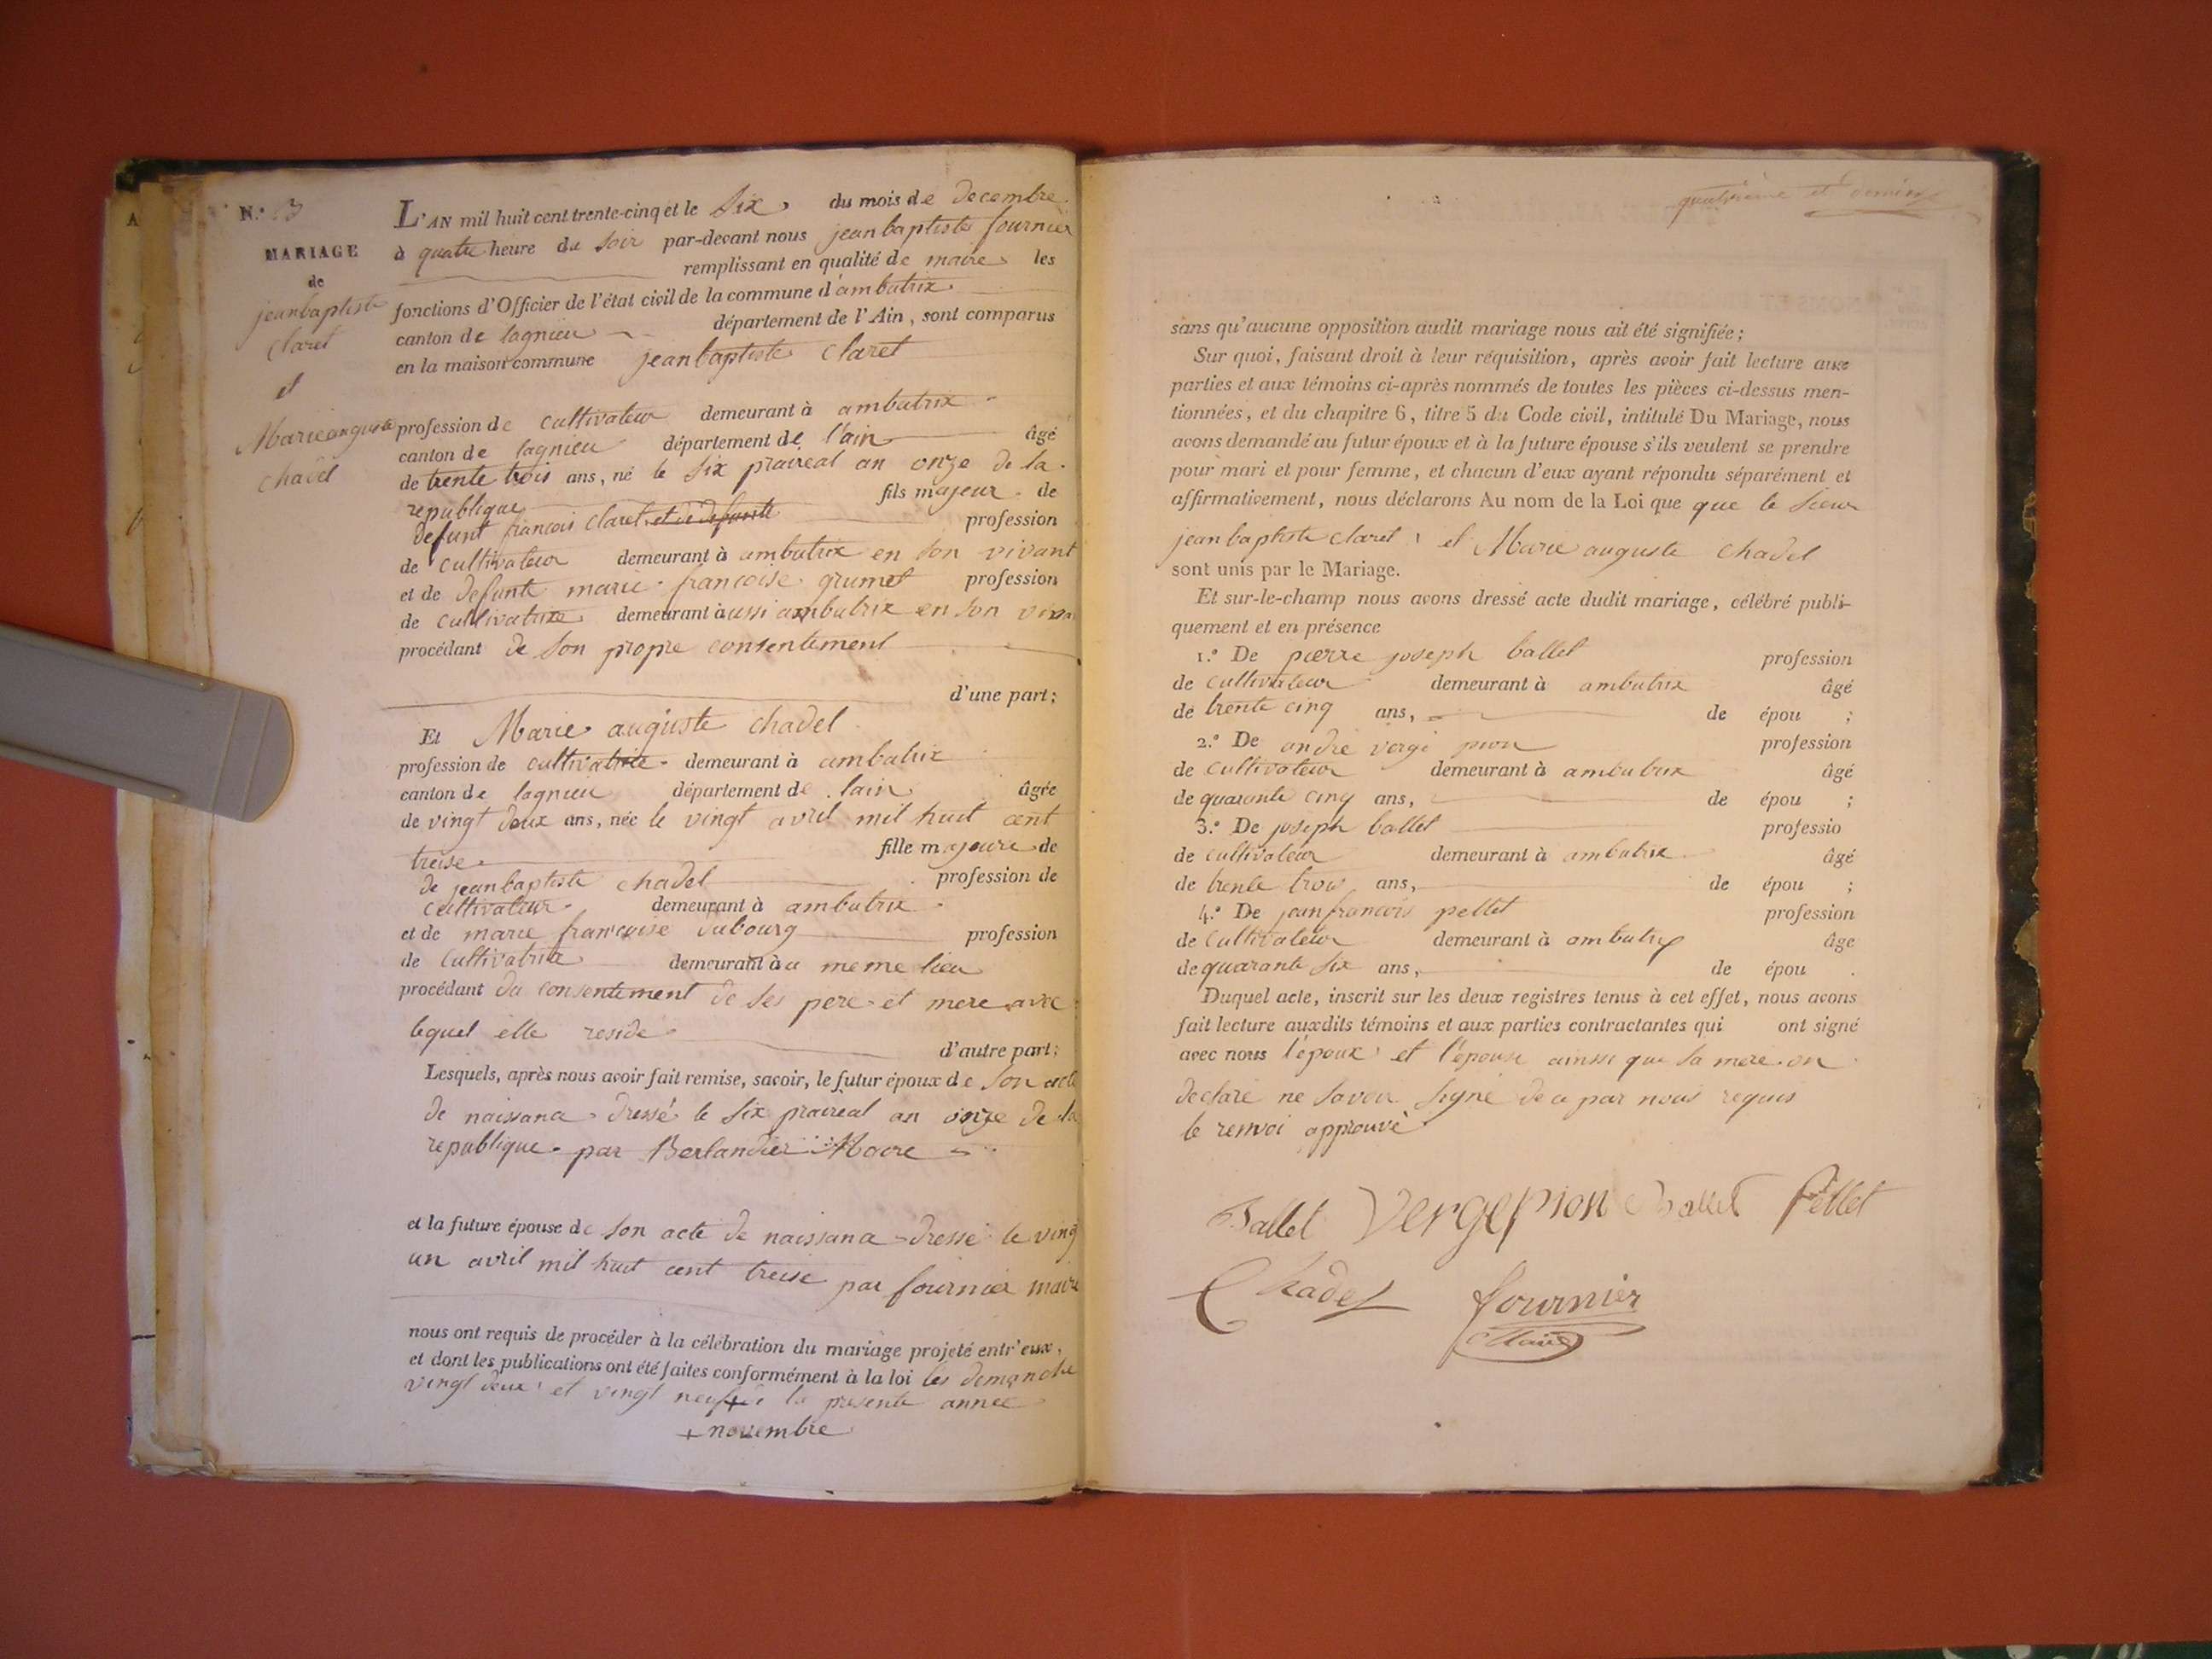 N.º 3
MARIAGE
de
jeanbaptiste
claret
et
Marie auguste
chadel
L'AN mil huit cent trente-cinq et le six du mois de decembre
à quatre heure du soir par-devant nous jean baptiste fournier
remplissant en qualité de maire les
fonctions d'Officier de l'état civil de la commune d'ambutrix
canton de lagnieu département de l'Ain, sont comparus
en la maison commune jean baptiste claret
profession de cultivateur demeurant à ambutrix
canton de lagnieu département de l'ain âgé
de trente trois ans, né le six praireal an onze de la
republique fils majeur de
defunt francois claret et de defunte profession
de cultivateur demeurant à ambutrix en son vivant
et de defunte marie francoise grumet profession
de cultivatrice demeurant à ussi ambutrix en son viva
procédant de son propre consentement
d'une part;
Et Marie auguste chadel
profession de cultivatrice demeurant à ambutrix
canton de lagnieu département de lain âgée
de vingt deux ans, née le vingt avril mil huit cent
treise fille majeure de
de jean baptiste chadel profession de
cultivateur demeurant à ambutrix
et de marie francoise dubourg profession
de cultivatrice demeurant à u meme lieu
procédant du consentement de ses pere et mere avec
lequel elle reside
d'autre part;
Lesquels, après nous avoir fait remise, savoir, le futur époux de son acte
de naissance dressé le six praireal an onze de la
republique par Berlandier Maire
et la future épouse de son acte de naissance dressé le ving
un avril mil huit cent treise par fournier maire
nous ont requis de procéder à la célébration du mariage projeté entr'eux,
et dont les publications ont été faites conformément à la loi les demanche
vingt deux et vingt neuf + de la presente année
+ novembre
quatrieme et dernier
sans qu'aucune opposition audit mariage nous ait été signifiée;
Sur quoi, faisant droit à leur réquisition, après avoir fait lecture aux
parties et aux témoins ci-après nommés de toutes les pièces ci-dessus men-
tionnées, et du chapitre 6, titre 5 du Code civil, intitulé Du Mariage, nous
avons demandé au futur époux et à la future épouse s'ils veulent se prendre
pour mari et pour femme, et chacun d'eux ayant répondu séparément et
affirmativement, nous déclarons Au nom de la Loi que que le sieur
jean baptiste claret et Marie auguste chadel
sont unis par le Mariage.
Et sur-le-champ nous avons dressé acte dudit mariage, célébré publi-
quement et en présence
1.º De pierre joseph ballet profession
de cultivateur demeurant à ambutrix âgé
de trente cinq ans, de épou ;
2.º De andré vergé pion profession
de cultivateur demeurant à ambutrix âgé
de quarante cinq ans, de épou ;
3.º De joseph ballet professio
de cultivateur demeurant à ambutrix âgé
de trente trois ans, de épou ;
4.º De jean francois pellet profession
de cultivateur demeurant à ambutrix âge
de quarante six ans, de épou .
Duquel acte, inscrit sur les deux registres tenus à cet effet, nous avons
fait lecture auxdits témoins et aux parties contractantes qui ont signé
avec nous l'époux et l'épouse ainssi que sa mere on
declaré ne savoir signé de ce par nous requis
le renvoi approuvé
Ballet Vergepion Ballet Pellet
Chadel fournier
Maire